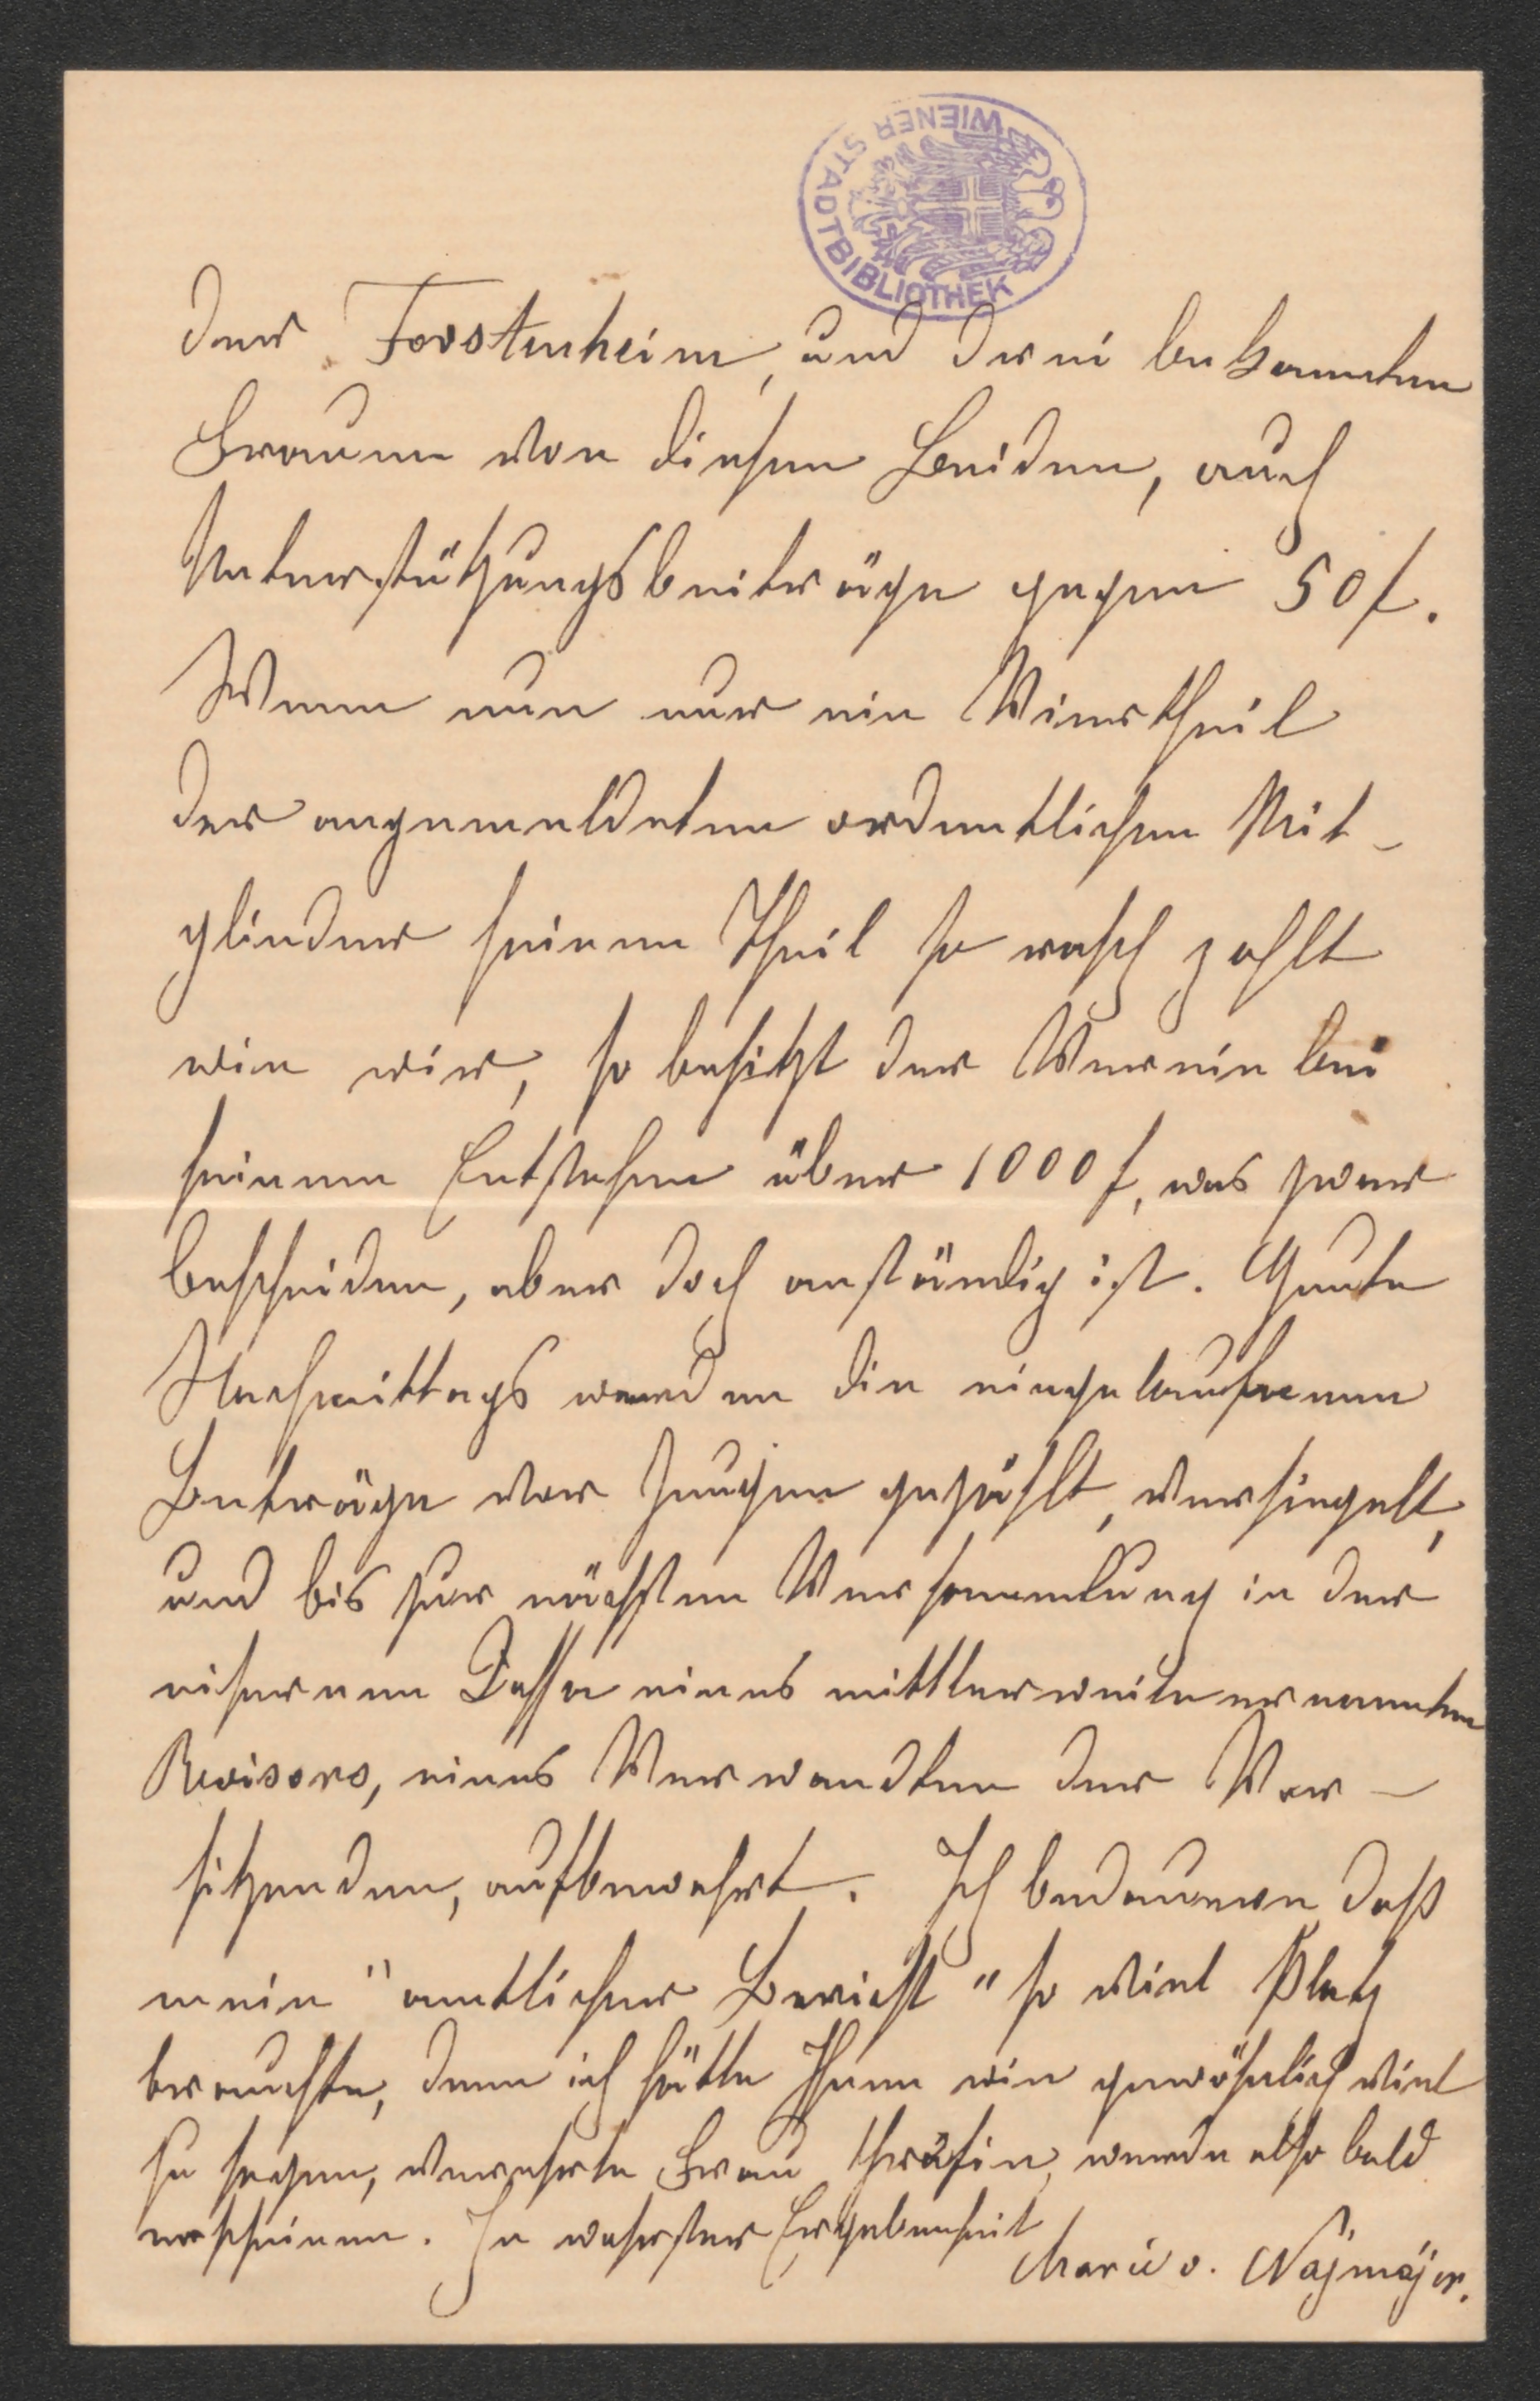 WIENER STADTBIBLIOTHEK
der Forstenheim, und drei bekannten
Frauen von diesen Beiden, auch
Unterstützungsbeiträge gegen 50 f.
Wenn nun nur ein Viertheil
der angemeldeten ordentlichen Mit-
glieder seinen Theil so rasch zahlt
wie wir, so besitzt der Verein bei
seinem Entstehen über 1000 f, was zwar
bescheiden, aber doch anständig ist. Heute
Nachmittags werden die eingelaufenen
Beträge vor Zeugen gezählt, versiegelt,
und bis zur nächsten Versammlung in der
eisernen Cassa eines mittlerweile ernannten
Revisors, eines Verwandten der Vor-
sitzenden, aufbewahrt. Ich bedauere daß
mein "amtlicher Bericht" so viel Platz
brauchte, denn ich hätte Ihnen wie gewöhnlich viel
zu sagen, verehrte Frau Gräfin, werde also bald
erscheinen. In wahrster Ergebenheit
Marie v. Najmájer.